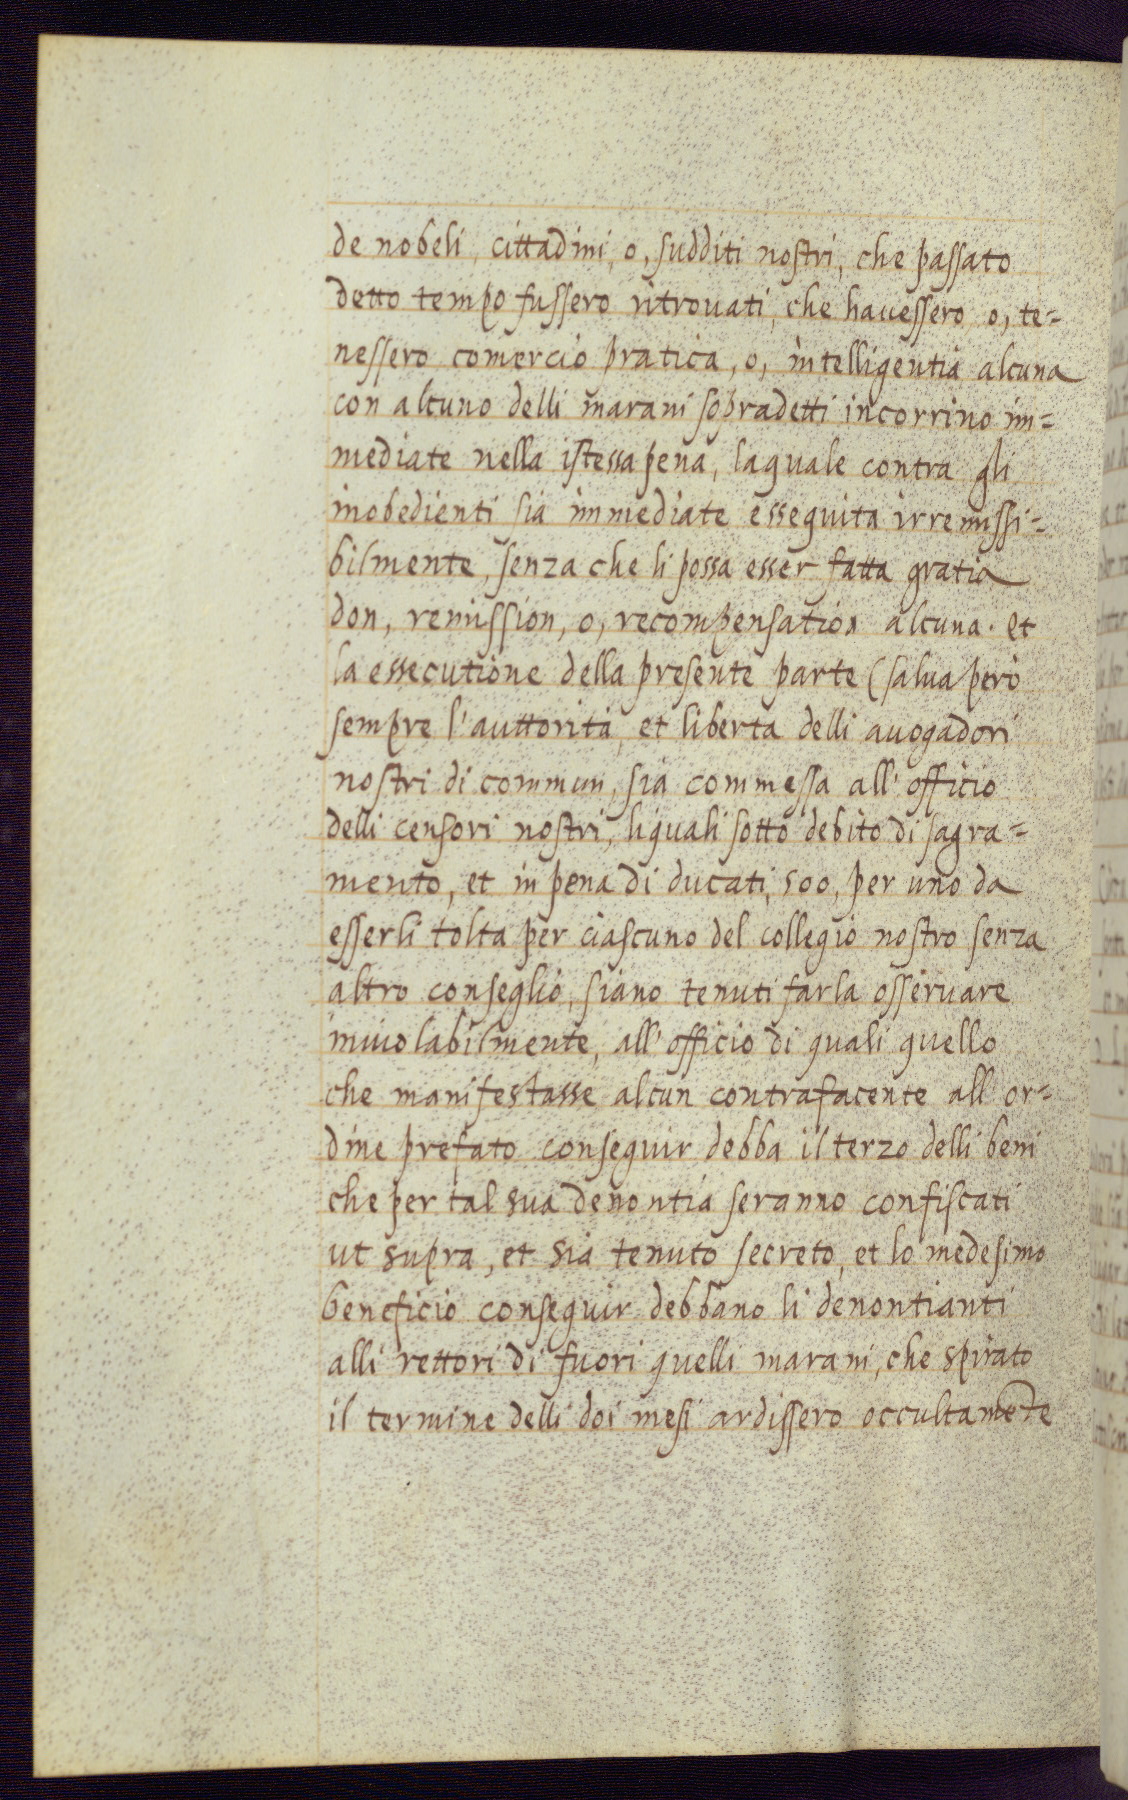 de nobeli, cittadini, o, sudditi nostri, che passato
detto tempo fussero ritrouati, che hauessero o, te=
nessero comercio pratica, o, intelligentia alcuna
con alcuno delli marani sopradetti incorrino im=
mediate nella istessa pena, laquale contra gli
inobedienti sia immediate essequita irremissi=
bilmente, senza che li possa esser fatta gratia
don, remission, o, recompensation alcuna. et
la essecutione della presente parte (salua però
sempre l'auttorità, et liberta delli auogadori
nostri di commun, sia commessa all' officio
delli censori nostri, liquali sotto debito di sagra=
mento, et in pena di ducati, 500, per uno da
esserli tolta per ciascuno del collegio nostro senza
altro conseglio, siano tenuti farla osseruare
inuiolabilmente, all' officio di quali quello
che manifestasse alcun contrafacente all' or=
dine prefato conseguir debba il terzo delli beni
che per tal sua denontia seranno confiscati
ut supra, et sia tenuto secreto, et lo medesimo
beneficio conseguir debbano li denontianti
alli rettori di fuori quelli marani, che spirato
il termine delli doi mesi ardissero occultamēte